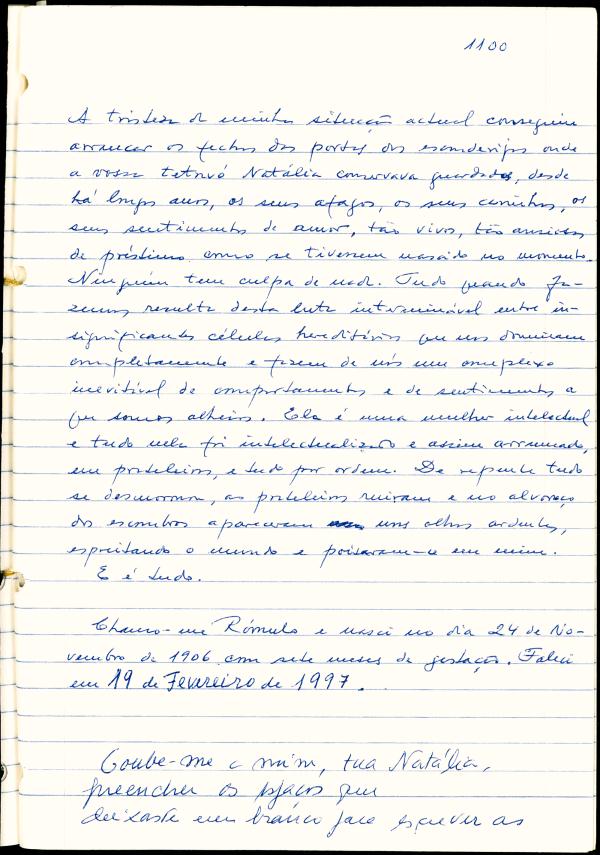 1100
A tristeza da minha situação actual conseguiu
arrancar os fechos das portas dos esconderijos onde
a vossa tetravó Natália conservava guardados, desde
há longos anos, os seus afagos, os seus carinhos, os
seus sentimentos de amor, tão vivos, tão ansiosos
de préstimo como se tivessem nascido no momento.
Ninguém tem culpa de nada. Tudo quando fa-
zemos resulta desta luta interminável entre in-
significantes células hereditárias que nos dominam
completamente e fazem de nós um complexo
inevitável de comportamentos e de sentimentos a
que somos alheios. Ela é uma mulher intelectual
e tudo nela foi intelectualizado e assim arrumado,
em prateleiras, e tudo por ordem. De repente tudo
se desmorona, as prateleiras ruíram e no alvoroço
dos escombros apareceram uns olhos ardentes,
espreitando o mundo e poisaram-se em mim.
E é tudo.
Chamo-me Rómulo e nasci no dia 24 de No-
vembro de 1906 com sete meses de gestação. Faleci
em 19 de Fevereiro de 1997.
Coube-me a mim, tua Natália,
preencher os espaços que
deixaste em branco para escrever as